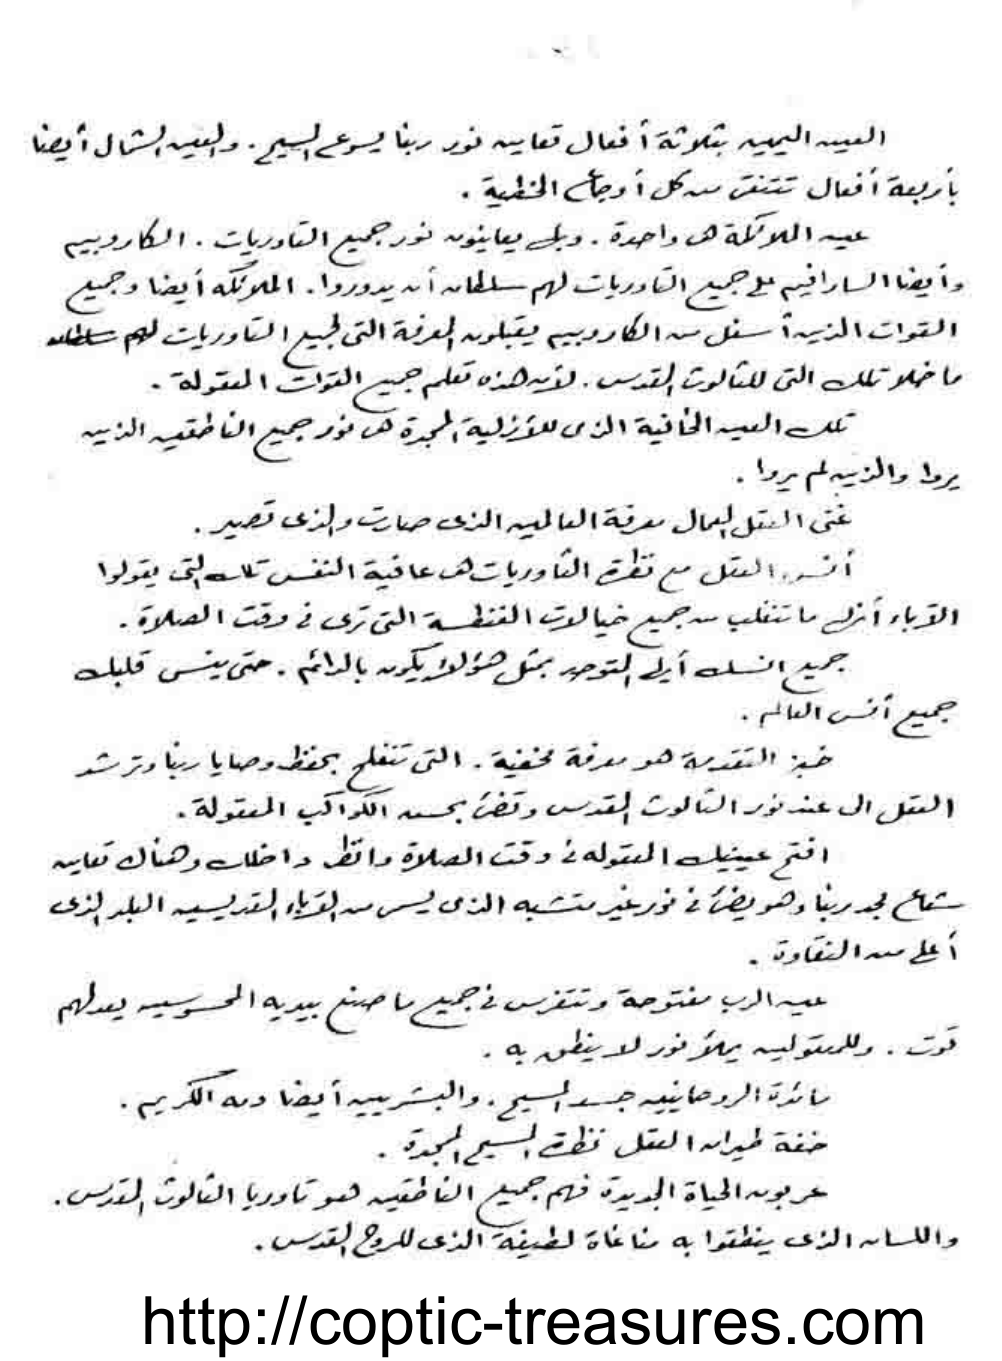 العين اليمين بثلاثة أفعال تعاين نور ربنا يسوع المسيح . والعين الشمال أيضا
بأربعة أفعال تتنقى من كل أوجاع الخطية .
عين الملائكة هى واحدة . وبها يعاينون نور جميع التاوريات . الكاروبيم
وأيضا السارافيم على جميع التاوريات لهم سلطان أن يدوروا . الملائكه أيضا وجميع
القوات الذين أسفل من الكاروبيم يقبلون المعرفة التى لجميع التاوريات لهم سلطان
ما خلا تلك التى للثالوث القدس . لأن هذه تعلم جميع القوات المعقولة .
تلك العين الخافية الذى للأزلية المجدة هى نور جميع الناطقين الذين
يروا والذين لم يروا .
غنى العقل العمال معرفة العالمين الذى صارت والذى تصير .
أنس العقل مع نظرة التاوريات هى عافية النفس تلك التى يقولوا
الآباء أنها ما تنغلب من جميع خيالات الفنطسة التى ترى فى وقت الصلاة .
جميع انسك أيها المتوحد بمثل هؤلاء يكون بالدائم . حتى ينسى قلبك
جميع أنس العالم .
خبز التقدمة هو معرفة مخفية . التى تنفلح بحفظ وصايا ربنا وترشد
العقل الى عند نور الثالوث القدس وتضئ بحسن الكواكب المعقولة .
افتح عينيك المعقوله فى وقت الصلاة وانظر داخلك وهناك تعاين
شعاع مجد ربنا وهو يضئ فى نور غير متشبه الذى ليس من الآباء القديسين البلد الذى
أعلى من النقاوة .
عين الرب مفتوحة وتتفرس فى جميع ما صنع بيديه المحسوسين يعد لهم
قوت . وللمعقولين يملأ نور لا ينطق به .
مائدة الروحانيين جسد المسيح . والبشريين أيضا دمه الكريم .
خفة طيران العقل نظرة المسيح المجدة .
عربون الحياة الجديدة فهم جميع الناطقين هو تاوريا الثالوث القدس .
واللسان الذى ينطقوا به مناغاة لطيفة الذى للروح القدس .
http://coptic-treasures.com